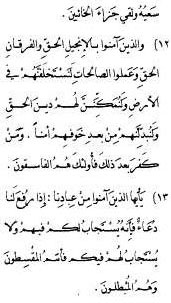 سَعيهُ ولقي جزاءَ الخائبين .
(١٢ والذين آمنوا بالإنجيل الحق والفرقان
الحق وعملوا الصالحات لنستخلفنّهم في
الأرض ولنمكّننّ لهم دين الحق
ولنبدّلنّهم من بعد خوفهم أمناً . ومن
كفر بعد ذلك فأولئك هم الفاسقون .
(١٣ يأيها الذين آمنوا من عبادنا : إذا رفع لنا
دعاءٌ فإنه يستجاب لكم فيهم ولا
يستجاب لهم فيكم فأنتم المقسطون
وهم المبطلون .